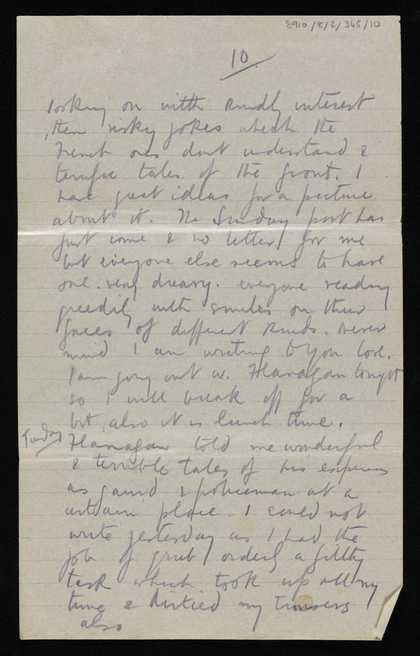 8910/5/2/365/10
10
looking on with kindly interest
then risky jokes which the
French ones dont understand &
terrific tales of the front. I
have great ideas for a picture
about it. The Sunday post has
just come & no letter for me
but everyone else seems to have
one. very dreary. everyone reading
greedily with smiles on their
faces of different kinds. never
mind I am writing to you love.
I am going out w. Flanagan tonight
so I will break off for a
bit also it is lunch time.
Tuesday
Flanagan told me wonderful
& terrible tales of his
as guard & policeman at a
certain place. I could not
write yesterday as I had the
job of orderly a filthy
task which took up all my
time & dirtied my trousers
also